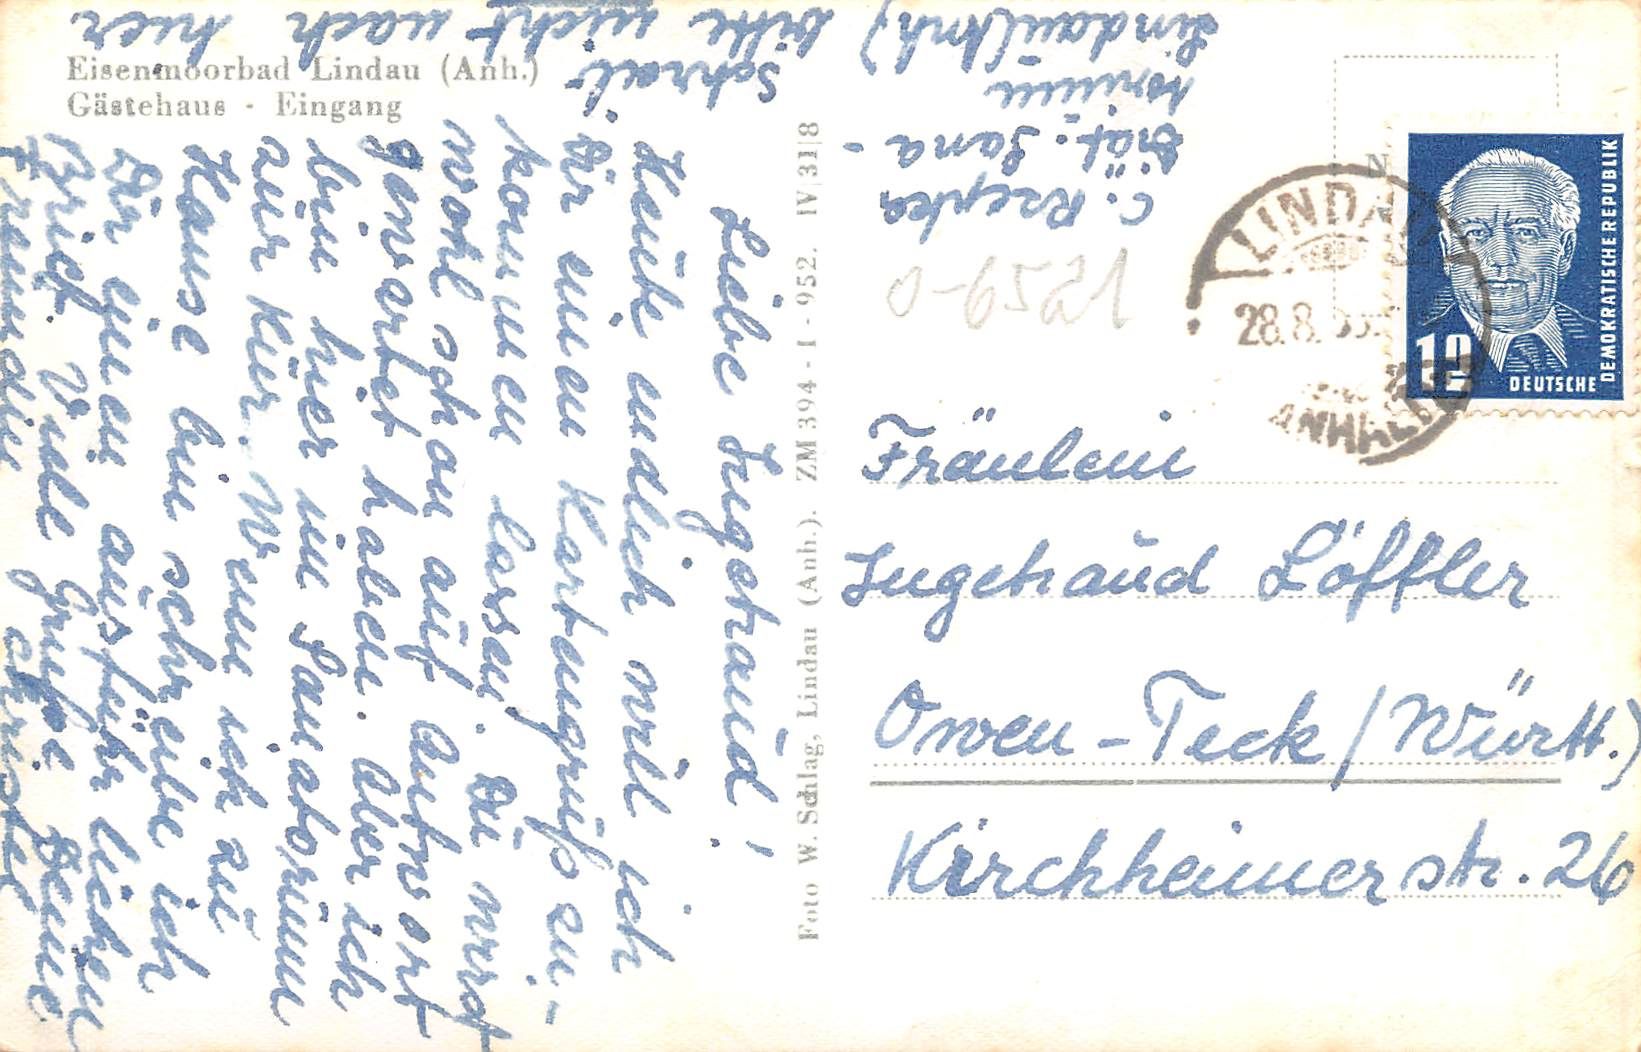 Eisenmoorbad Lindau (Anh.)
Gästehaus - Eingang
Liebe Ingetraud!
Heute endlich will ich
Dir einen Kartengruß zu-
kommen lassen. Du wirst
wohl schon auf Antwort
gewartet haben. Aber ich
bin hier im Sanatorium
zur Kur. Wenn ich zu
Hause bin schreibe ich
Dir einen ausführlichen
Brief. Viele Grüße Deine
Freundin
Schreib
bitte nicht nach hier.
Foto W. Schlag, Lindau (Anh.). ZM 394 - I - 952. IV|31|8
C.
Sana-
torium
Lindau (Anh)
1259-0
LINDAU
28.8.
ANHALT
12
DEUTSCHE
DEMOKRATISCHE REPUBLIK
Fräulein
Ingetraud Löffler
Owen-Teck/(Württ.)
Kirchheimerstr. 26